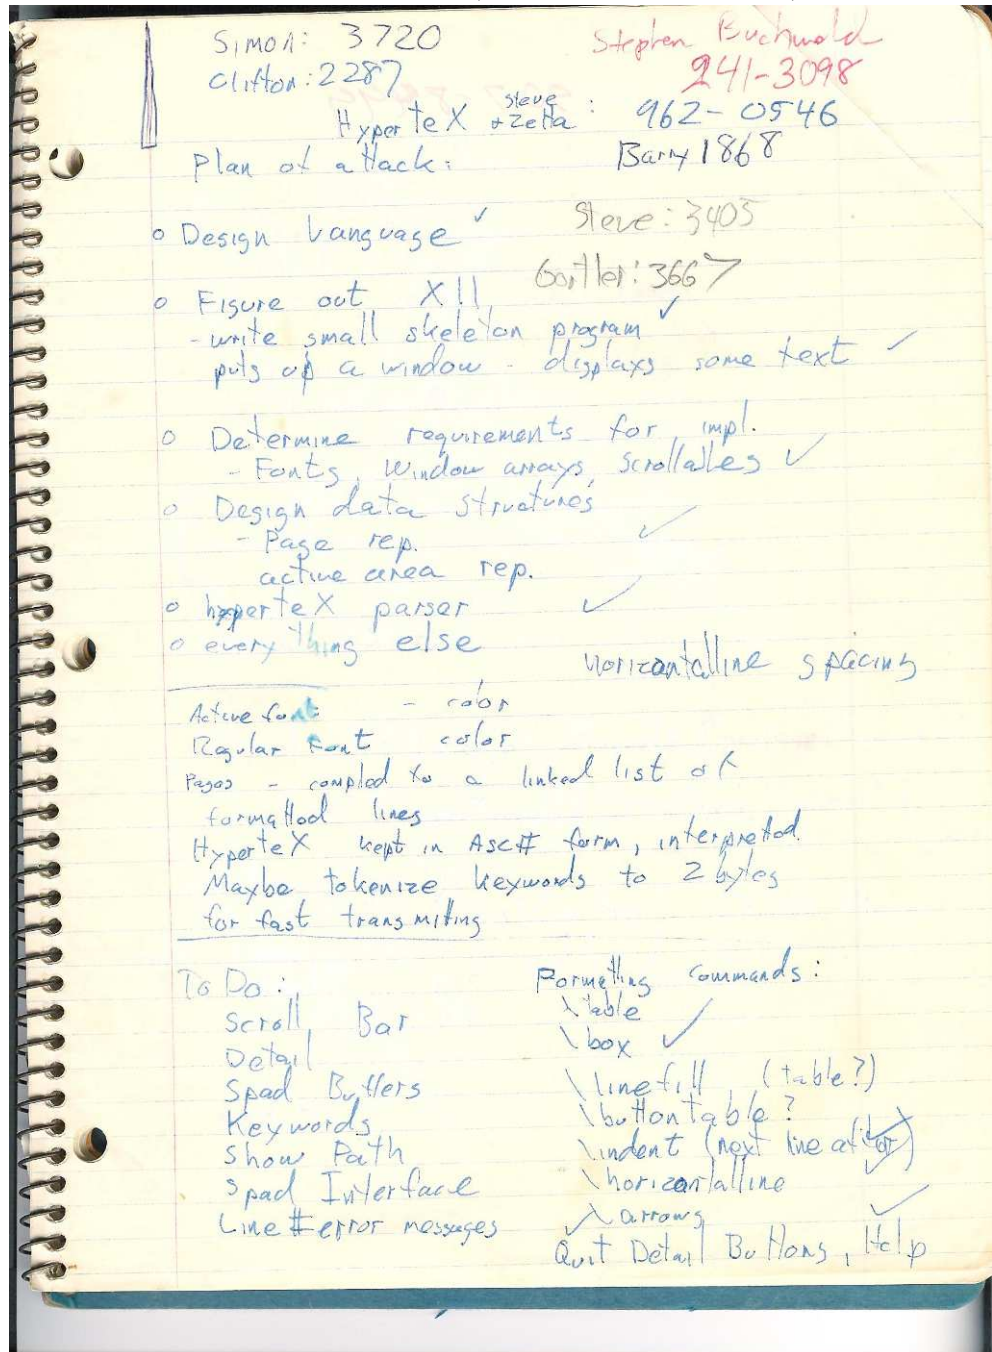 Simon: 3720
Stephen Buchwald
Clifton: 2287
241-3098
HyperteX steve + Zetta : 962-0546
Plan of attack:
Barry 1868
o Design Language ✓
Steve: 3405
Gortler: 3667
o Figure out X11
- write small skeleton program ✓
puts up a window - displays some text ✓
o Determine requirements for impl.
- Fonts, window arrays, scrollables ✓
o Design data structures
- Page rep. ✓
active area rep.
o hyperteX parser ✓
o every thing else
horizontalline spacing
Active font - color
Regular Font color
Pages - compled to a linked list of
formatted lines
HyperteX kept in ASCII form, interpretted.
Maybe tokenize keywords to 2 bytes
for fast transmiting
To Do:
Scroll Bar
Detail
Spad Buffers
Keywords
Show Path
Spad Interface
Line # error messages
Formatting commands:
\table
\box ✓
\linefill (table?)
\buttontable?
\indent (next line at
\horizontalline ✓
✓ \arrows
Quit Detail Buttons, Help ✓